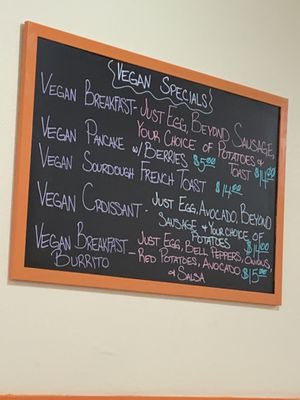 VEGAN SPECIALS
VEGAN BREAKFAST- JUST EGG, BEYOND SAUSAGE,
YOUR CHOICE OF POTATOES &
TOAST $14.00
VEGAN PANCAKE W/ BERRIES $5.00
VEGAN SOURDOUGH FRENCH TOAST $14.00
VEGAN CROISSANT - JUST EGG, AVOCADO, BEYOND
SAUSAGE & YOUR CHOICE OF
POTATOES $14.00
VEGAN BREAKFAST BURRITO - JUST EGG, BELL PEPPERS, ONIONS,
RED POTATOES, AVOCADO
& SALSA $15.00